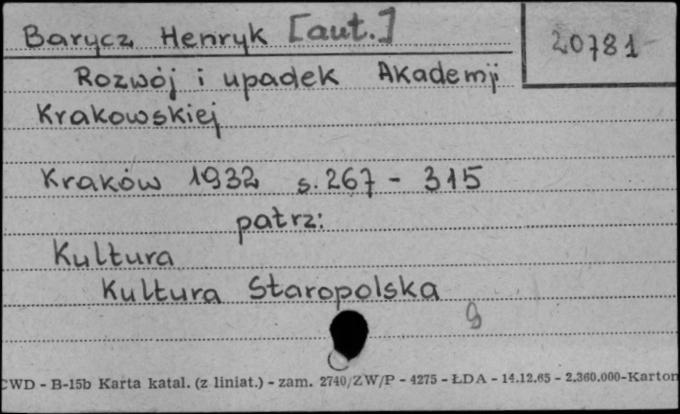 Barycz Henryk [aut.]
20781
Rozwój i upadek Akademji
Krakowskiej
Kraków 1932 s. 267 - 315
patrz:
Kultura
Kultura Staropolska
9
CWD - B-15b Karta katal. (z liniat.) - zam. 2740/ZW/P - 4275 - ŁDA - 14.12.65 - 2.360.000-Karton